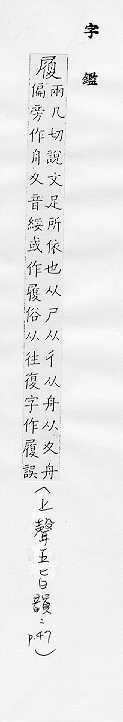 字鑑
履
兩几切說文足所依也从尸从彳从舟从夊舟
偏旁作月夊音綏或作履俗从往復字作履誤
（上聲五旨韻
p.47）